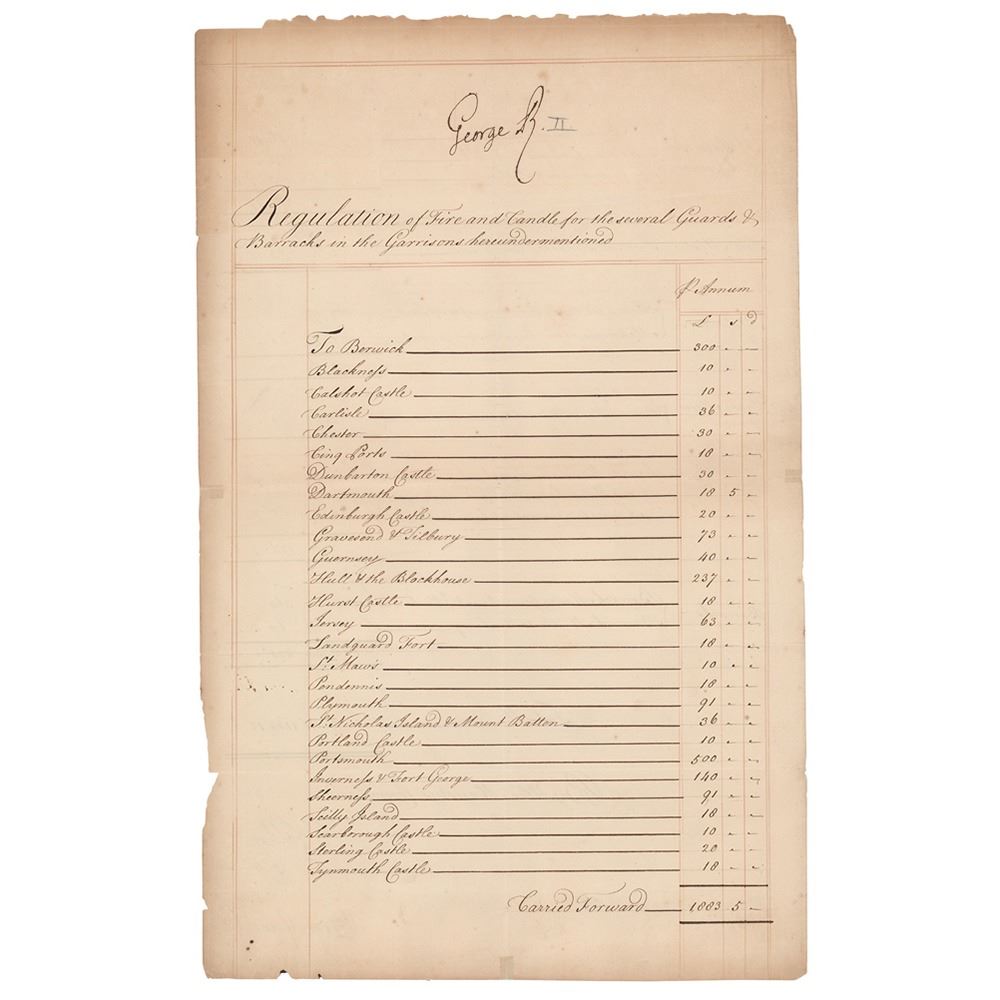 George R. II
Regulation of Fire and Candle for the several Guards &
Barracks in the Garrisons hereundermentioned
P Annum
£ s d
To Berwick 300 - -
Blackness 10 - -
Calshot Castle 10 - -
Carlisle 36 - -
Chester 30 - -
Cinq Ports 18 - -
Dunbarton Castle 30 - -
Dartmouth 18 5 -
Edinburgh Castle 20 - -
Gravesend & Tilbury 73 - -
Guernsey 40 - -
Hull & the Blackhouse 237 - -
Hurst Castle 18 - -
Jersey 63 - -
Landguard Fort 18 - -
St. Maws 10 - -
Pendennis 18 - -
Plymouth 91 - -
St. Nicholas Island & Mount Batten 36 - -
Portland Castle 10 - -
Portsmouth 500 - -
Inverness & Fort George 140 - -
Sheerness 91 - -
Scilly Island 18 - -
Scarborough Castle 10 - -
Sterling Castle 20 - -
Tynmouth Castle 18 - -
Carried Forward 1,883 5 -